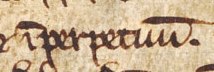 ī perpetuum.